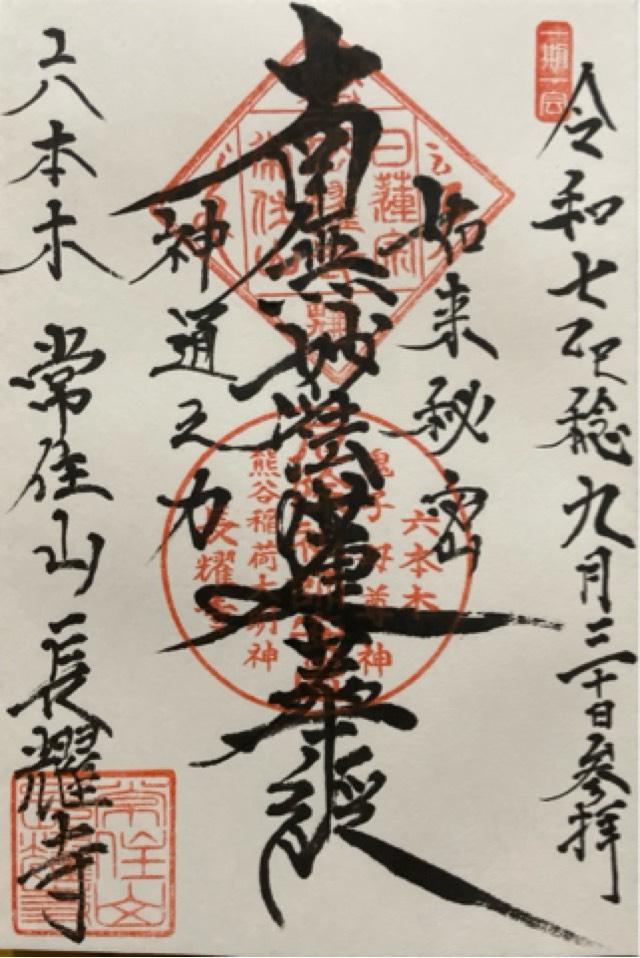 一期一会
令和七乙巳稔九月三十日参拝
如来秘密
南無妙法蓮華経
神通之力
六本木 常住山 長耀寺
日蓮宗
常住山
六本木
鬼子母尊神
熊谷稲荷大明神
長耀寺
常住山